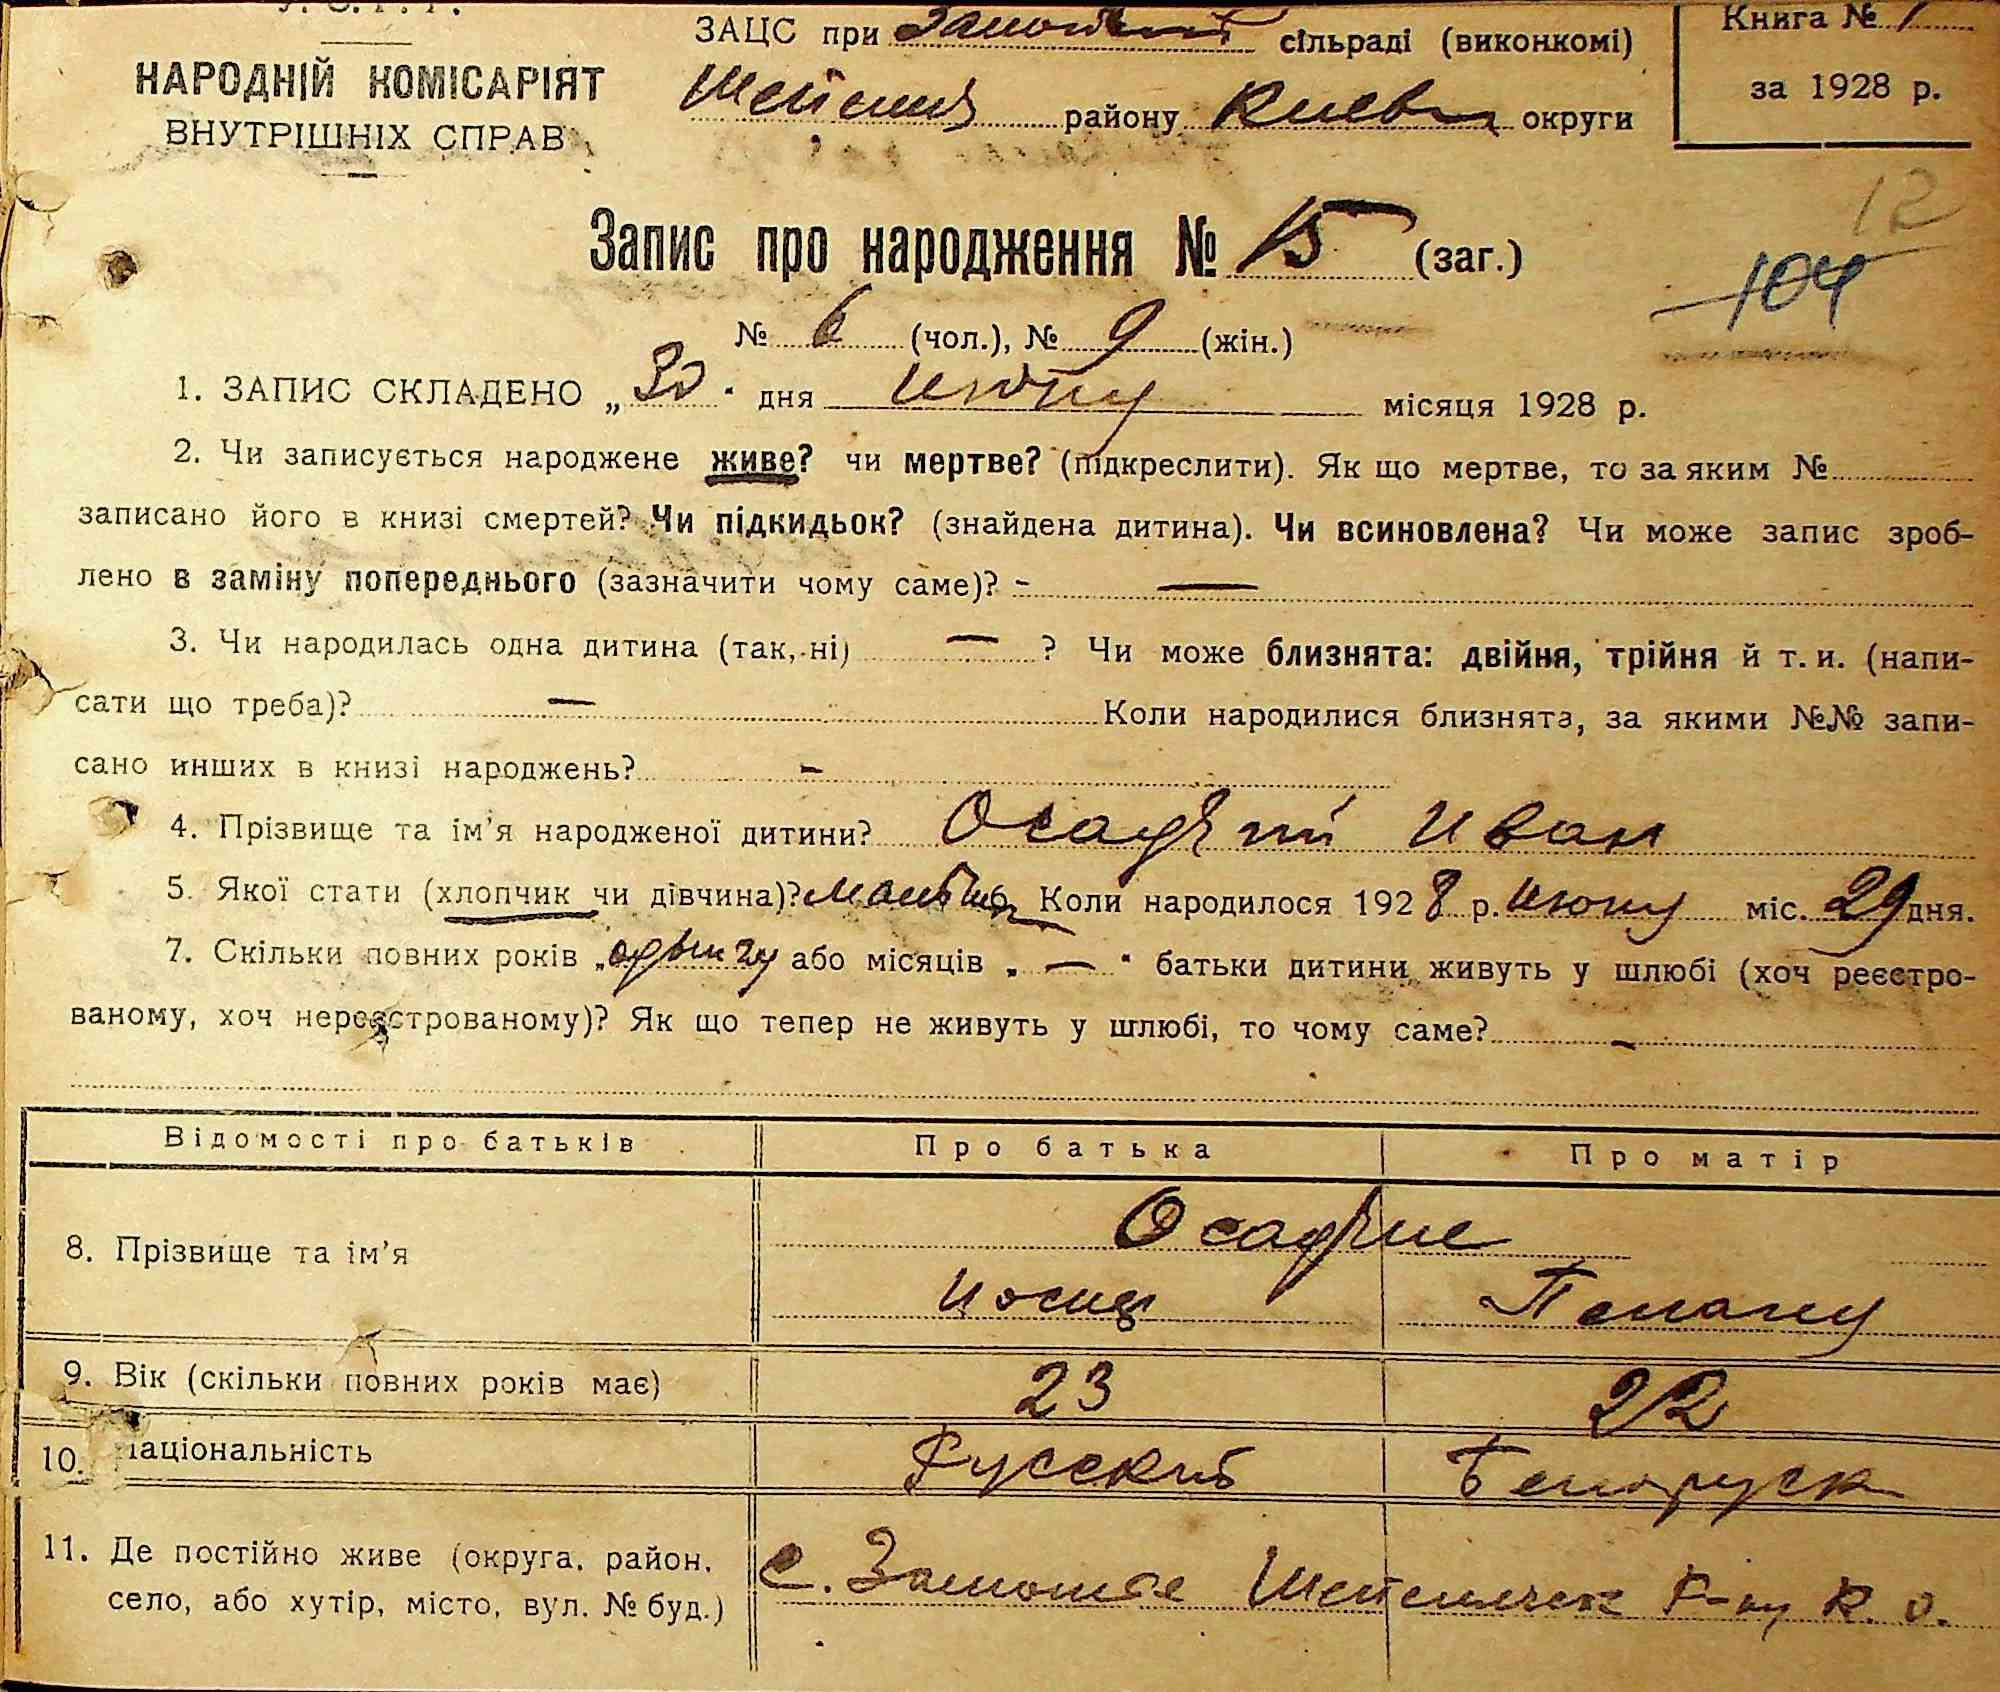 У. С. Р. Р.
ЗАЦС при сільраді (виконкомі)
Книга № 1
НАРОДНІЙ КОМІСАРІЯТ
району Киевск округи
за 1928 р.
ВНУТРІШНІХ СПРАВ
12
Запис про народження № 15 (заг.)
104
№ 6 (чол.), № 9 (жін.)
1. ЗАПИС СКЛАДЕНО „30" дня Июну місяця 1928 р.
2. Чи записується народжене живе? чи мертве? (підкреслити). Як що мертве, то за яким №
записано його в книзі смертей? Чи підкидьок? (знайдена дитина). Чи всиновлена? Чи може запис зроб-
лено в заміну попереднього (зазначити чому саме)? - —
3. Чи народилась одна дитина (так, ні) — ? Чи може близнята: двійня, трійня й т. и. (напи-
сати що треба)? — Коли народилися близнята, за якими №№ запи-
сано инших в книзі народжень? -
4. Прізвище та ім'я народженої дитини? Осадчий Иван
5. Якої стати (хлопчик чи дівчина)? Коли народилося 1928 р. Июну міс. 29 дня.
7. Скільки повних років „ або місяців „ — " батьки дитини живуть у шлюбі (хоч реєстро-
ваному, хоч нереєстрованому)? Як що тепер не живуть у шлюбі, то чому саме? -
Відомості про батьків Про батька Про матір
8. Прізвище та ім'я Осадчие
9. Вік (скільки повних років має) 23 22
10. Національність Русский Белоруск
11. Де постійно живе (округа, район, с. Р-ну К. о.
село, або хутір, місто, вул. № буд.)